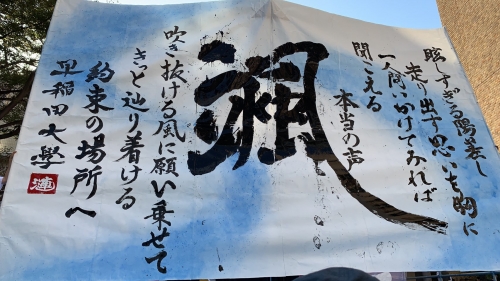 眩しすぎる陽差し
走り出す思いを胸に
一人問いかけてみれば
聞こえる
本当の声
吹き抜ける風に願い乗せて
きっと辿り着ける
約束の場所へ
早稲田大學
漣